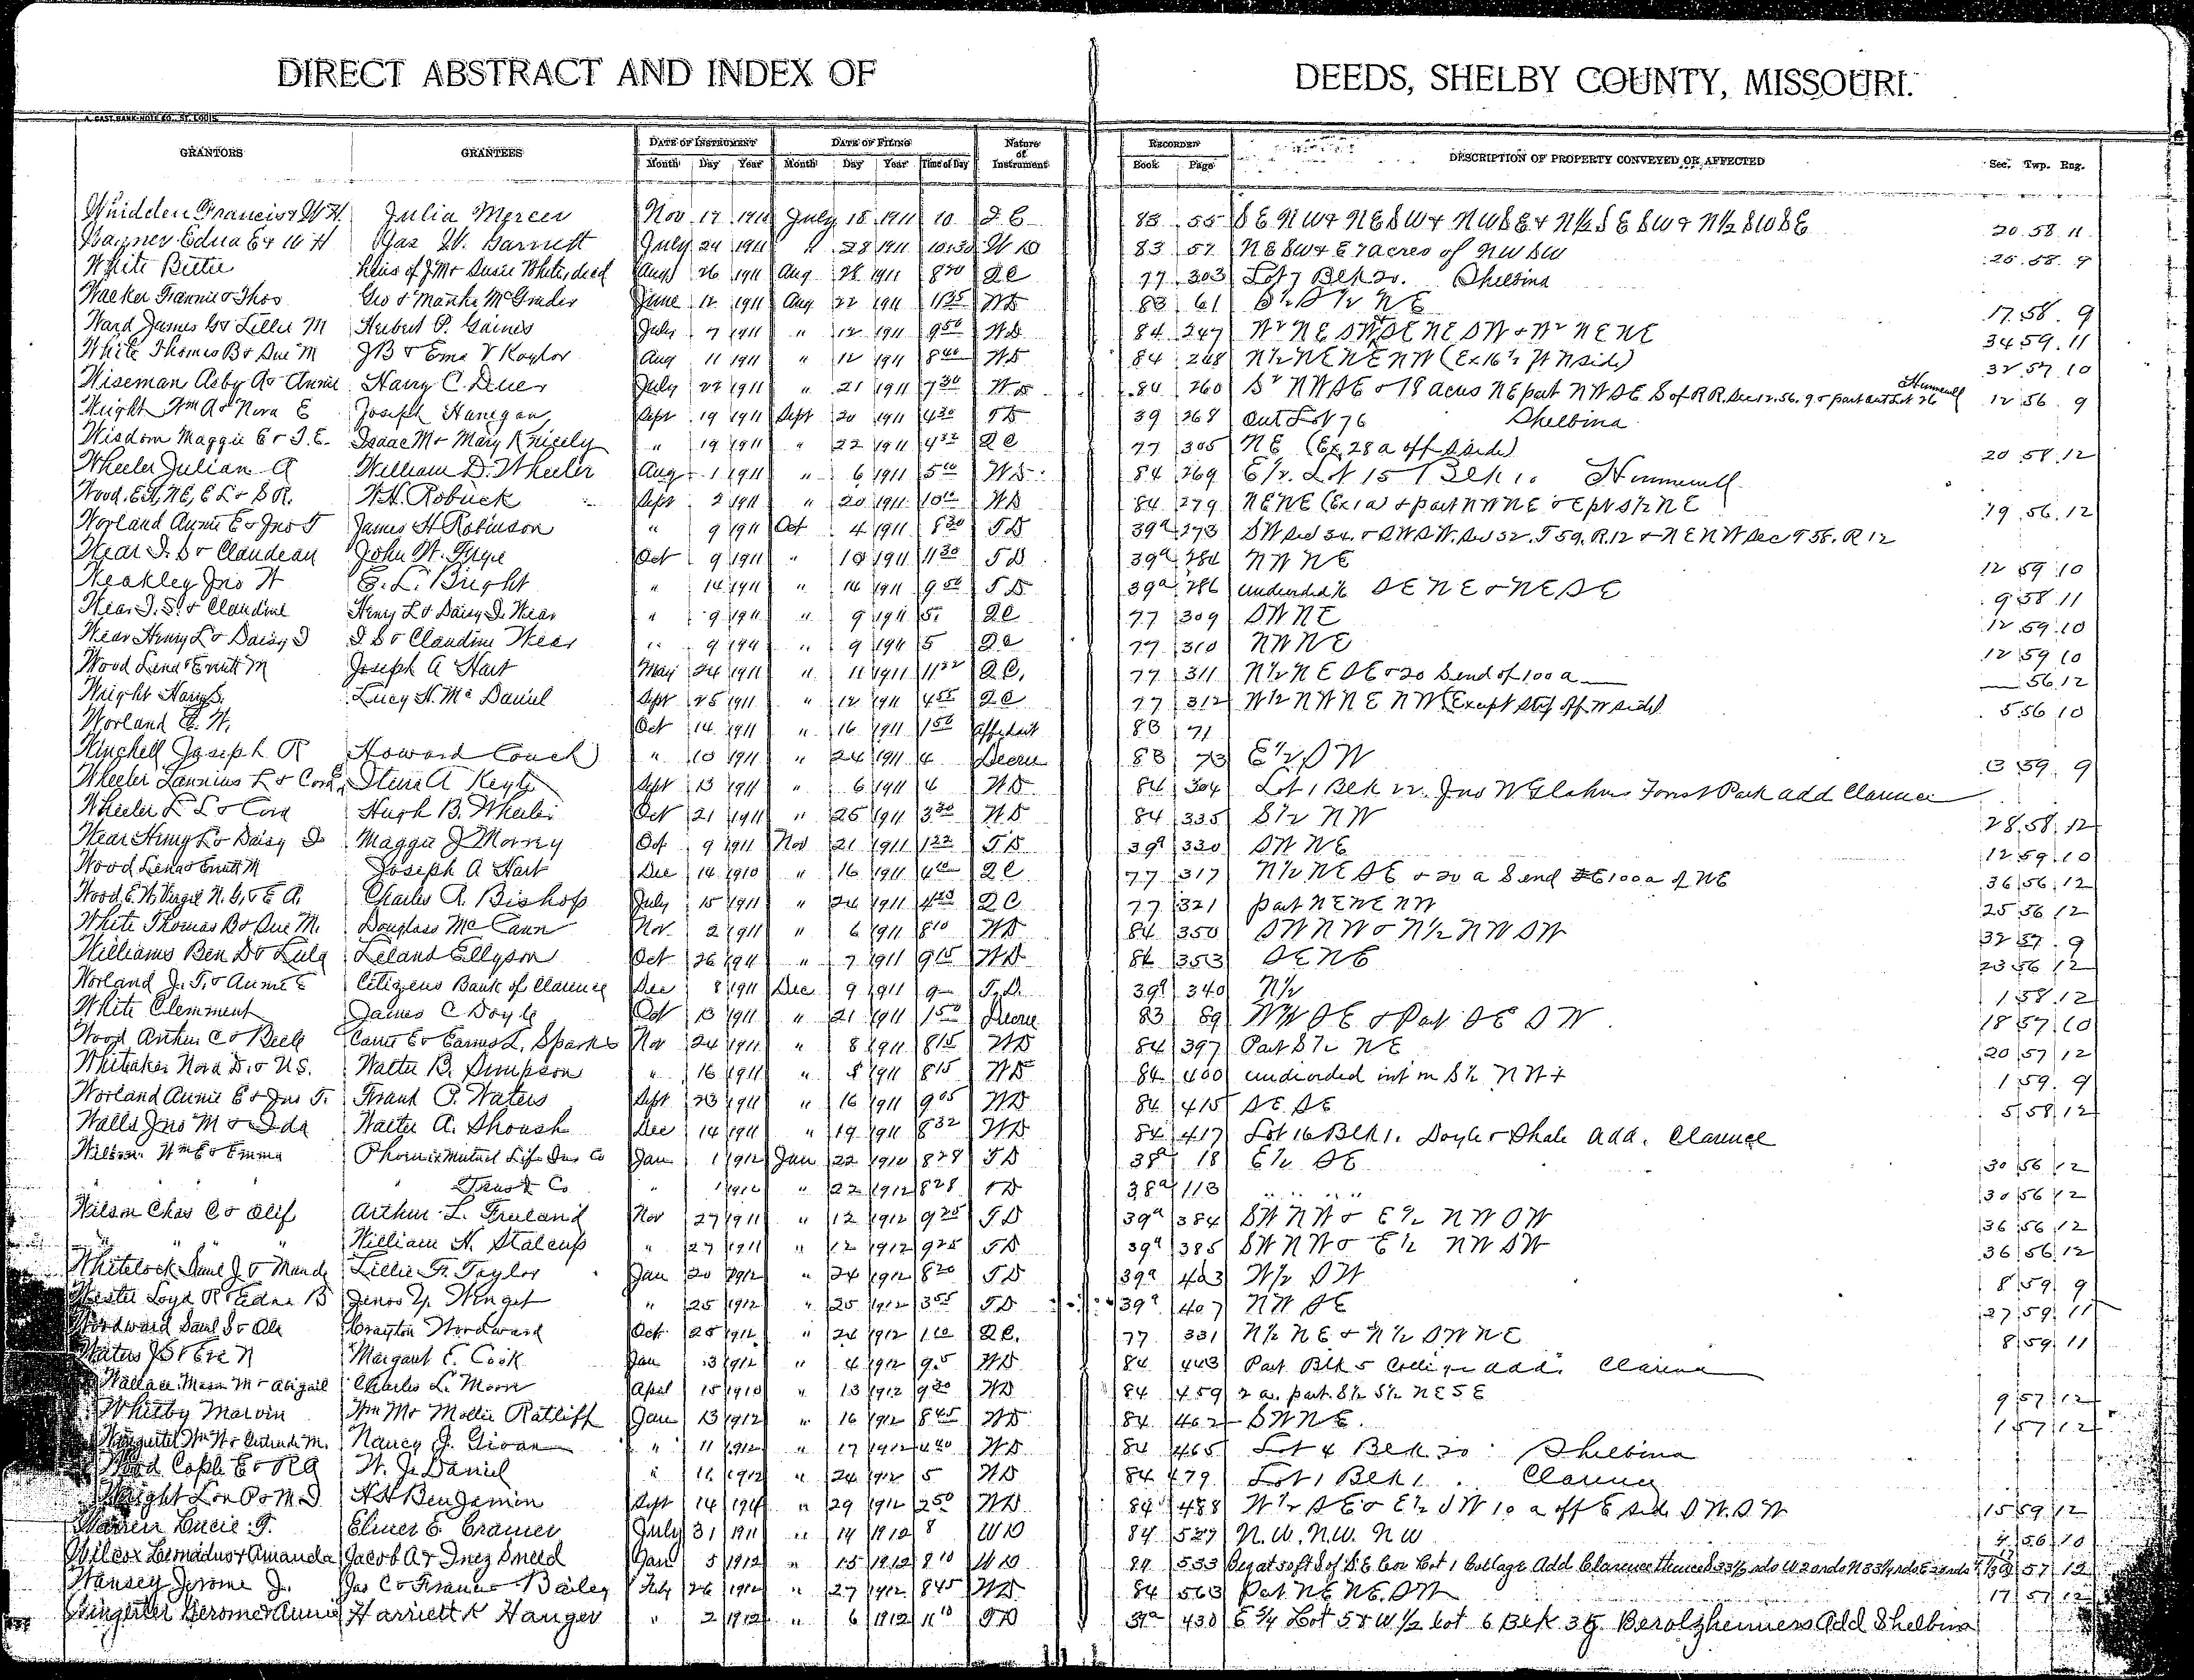 DIRECT ABSTRACT AND INDEX OF DEEDS, SHELBY COUNTY, MISSOURI.
A. GAST BANK NOTE CO., ST. LOUIS.
GRANTORS GRANTEES DATE OF INSTRUMENT DATE OF FILING Nature of Instrument RECORDED DESCRIPTION OF PROPERTY CONVEYED OR AFFECTED Sec. Twp. Rng.
Month Day Year Month Day Year Time of Day Book Page
Whidden Francis & W H Julia Mercer Nov 17 1911 July 18 1911 10 Q C 83 55 S E N W & N E S W & N W S E & N ½ S E S W & N ½ S W S E 20 58 11
Edna E & W H Jas W. Barnett July 24 1911 " 28 1911 10:30 W D 83 57 N E S W & E 7 acres of N W S W 25 58 9
White Bettie heirs of J M & Susie White, decd Aug 26 1911 Aug 28 1911 8 20 Q C 77 303 Lot 7 Blk 20. Shelbina
Walker Fannie & Thos Geo & Martha McGruder June 12 1911 Aug 22 1911 11 35 W D 83 61 S ½ N E 17 58 9
Ward James G & Lillie M Hubert P. Gaines July 7 1911 " 12 1911 9 50 W D 84 247 34 59 11
White Thomas B & Sue M J B & Ema V Kaylor Aug 11 1911 " 12 1911 8 40 W D 84 248 N ½ N E N E N W (Ex 16 ½ ft N side) 32 57 10
Wiseman Asby A & Annie Harry C. Duer July 22 1911 " 21 1911 7 30 W D 84 260 N W S E & 18 acres N E part N W S E S of R R. Sec 12. 56. 9 & part out Lot 26 Hunnewell 12 56 9
Wright Wm A & Nora E Joseph Hanegan Sept 19 1911 Sept 20 1911 4 30 T D 39 268 Out Lot 76 Shelbina
Wisdom Maggie E & J. E. Isaac M & Mary Knicely " 19 1911 " 22 1911 4 32 Q C 77 305 N E (Ex 28 a off S side) 20 58 12
Wheeler Julian A William D. Wheeler Aug 1 1911 " 6 1911 5 00 W D 84 269 E ½ Lot 15 Blk 10 Hunnewell
Wood, N E, E L & S R. W. H. Robuck Sept 2 1911 " 20 1911 10 10 W D 84 279 N E N E (Ex 1 a) & part N W N E & E pt S ½ N E 19 56 12
Worland Annie E & Jno T James H Robinson " 9 1911 Oct 4 1911 8 30 T D 39a 273 S W Sec 34. & S W S W. Sec 32. T 59. R. 12 & N E N W Sec 9 T 58. R 12
Wear I. S & Claudean John W. Frye Oct 9 1911 " 10 1911 11 30 T D 39a 284 N W N E 12 59 10
Weakley Jno W E. L. Bright " 14 1911 " 14 1911 9 50 T D 39a 286 undivided ½ S E N E & N E S E 9 58 11
Wear I. S. & Claudine Henry L & Daisy I. Wear " 9 1911 " 9 1911 5 Q C 77 309 S W N E 12 59 10
Wear Henry L & Daisy I I S & Claudine Wear " 9 1911 " 9 1911 5 Q C 77 310 N W N E 12 59 10
Wood Lena & Emitt M Joseph A Hart May 24 1911 " 11 1911 11 22 Q C. 77 311 N ½ N E S E & 20 S end of 100 a 56 12
Wright Harry S. Lucy H. Mc Daniel Sept 25 1911 " 12 1911 4 55 Q C 77 312 W ½ N W N E N W (Except strip off W side) 5 56 10
Worland W. Oct 14 1911 " 16 1911 1 50 Affidavit 83 71
Winchell Joseph R Howard Couch " 10 1911 " 24 1911 4 Decree 83 73 E ½ S W 13 59 9
Wheeler Lannius L & Cora Steve A Keyle Sept 13 1911 " 6 1911 4 W D 84 304 Lot 1 Blk 22 Jno W Glahns Forest Park add Clarence
Wheeler L L & Cora Hugh B. Wheeler Oct 21 1911 " 25 1911 3 30 W D 84 335 S ½ N W 28 58 12
Wear Henry L & Daisy I Maggie J Morrey Oct 9 1911 Nov 21 1911 1 22 T D 39a 330 S W N E 12 59 10
Wood Lena & Emitt M Joseph A Hart Dec 14 1910 " 16 1911 4 10 Q C 77 317 N ½ N E S E & 20 a S end E 100 a of N E 36 56 12
Wood, E. W, Virgil N. G, & E A. Charles A. Bishop July 15 1911 " 24 1911 4 20 Q C 77 321 part N E N E N W 25 56 12
White Thomas B & Sue M. Douglass McCann Nov. 2 1911 " 6 1911 8 10 W D 84 350 S W N W & N ½ N W S W 32 57 9
Williams Ben D & Lula Leland Ellyson Oct 26 1911 " 7 1911 9 15 W D 84 353 S E N E 23 56 12
Worland J. T. & Annie E Citizens Bank of Clarence Dec 8 1911 Dec 9 1911 9 T. D. 39a 340 N ½ 1 58 12
White Clemment James C Doyle Oct 13 1911 " 21 1911 1 50 Decree 83 89 W ½ S E & Part S E S W 18 57 10
Wood Arthur C & Belle Carrie E & Earnest L. Sparks Nov 24 1911 " 8 1911 8 15 W D 84 397 Part S ½ N E 20 57 12
Whitaker Nora D. & U. S. Walter B. Simpson " 16 1911 " 8 1911 8 15 W D 84 400 undivided int in S ½ N W 1 59 9
Worland Annie E & Jno T. Frank P. Waters Sept 23 1911 " 16 1911 9 05 W D 84 415 S E S E 5 58 12
Walls Jno M & Ida Walter A. Shoush Dec 14 1911 " 19 1911 8 32 W D 84 417 Lot 16 Blk 1. Doyle & Shale add. Clarence
Wilson Wm E & Emma Phoenix Mutual Life Ins Co Jan 1 1912 Jan 22 1910 8 28 T D 38a 18 E ½ S E 30 56 12
" " Trust Co " 1 1912 " 22 1912 8 28 T D 38a 113 " " " " 30 56 12
Wilson Chas C & Alif Arthur L. Freeland Nov 27 1911 " 12 1912 9 25 T D 39a 384 S W N W & E ½ N W S W 36 56 12
" " William H. Stalcup " 27 1911 " 12 1912 9 25 T D 39a 385 S W N W & E ½ N W S W 36 56 12
Whitelock Saml J & Maude Lillie F. Taylor Jan 20 1912 " 24 1912 8 20 T D 39a 403 W ½ S W 8 59 9
Wester Loyd R & Edna B Jenos Y. Winget " 25 1912 " 25 1912 3 55 T D 39a 407 N W S E 27 59 11
Woodward Saml S & Ola Crayton Woodward Oct 25 1912 " 26 1912 1 10 Q C. 77 331 N ½ N E & N ½ S W N E 8 59 11
Waters J S & Eva N Margaret E. Cook Jan 3 1912 " 4 1912 9.5 W D 84 443 Part Blk 5 College add. Clarence
Wallace Mason M & Abigail Charles L. Moore April 15 1910 " 13 1912 9 30 W D 84 459 2 a. part S ½ S ½ N E S E 9 57 12
Whitby Marvin Wm M & Mollie Ratliff Jan 13 1912 " 16 1912 8 45 W D 84 462 S W N E. 1 57 12
Wm W & Gertrude M. Nancy J. Givan " 11 1912 " 17 1912 4 40 W D 84 465 Lot 4 Blk 20 Shelbina
Wood Caple E & R G W. J. Daniel " 16 1912 " 24 1912 5 W D 84 479 Lot 1 Blk 1. Clarence
Wright Lon P & M. D H H Benjamin Sept 14 1911 " 29 1912 2 50 W D 84 488 W ½ S E & E ½ S W 10 a off E side S W. S W 15 59 12
Warren Lucie F. Elmer E. Cramer July 31 1911 " 14 1912 8 W D 84 527 N. W. N. W. N W 4 56 10
Wilcox Leonadus & Amanda Jacob A & Inez Sneed Jan 5 1912 " 15 1912 8 10 W D 84 533 Beg at 50 ft S of S. E. Cor Lot 1 College Add Clarence thence S 33 ⅓ rds W 2 ands N 33 ⅓ rds E 2 ands 57 12
Wansey Jerome J. Jas C & Frances Bailey Feby 26 1912 " 27 1912 8 45 W D 84 563 Part N E N E. S W 17 57 12
Wingerter Gerome & Annie Harriett K Hanger " 2 1912 " 6 1912 11 10 T D 39a 430 E ¾ Lot 5 & W ½ Lot 6 Blk 35 Berolzheimers Add Shelbina